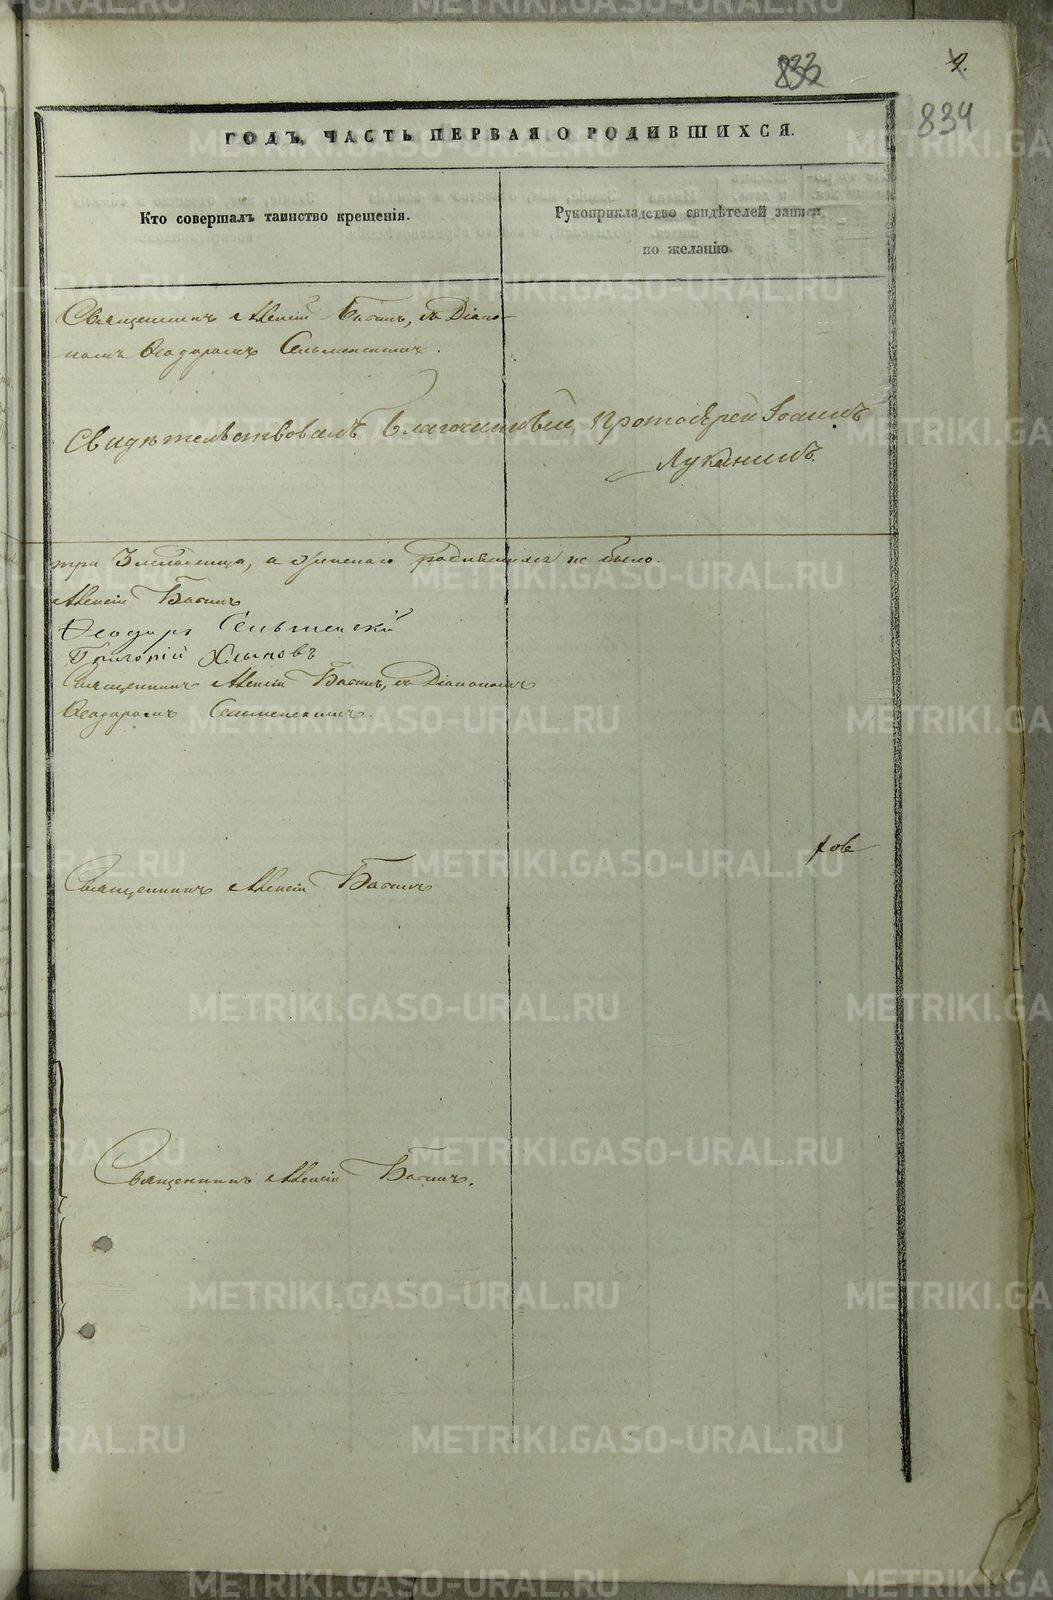 833
2.
834
ГОДЪ, ЧАСТЬ ПЕРВАЯ О РОДИВШИХСЯ.
Кто совершалъ таинство крещенія.
Рукоприкладство свидѣтелей записи
по желанію.
Священникъ Алексій Бабинъ, съ Діако-
номъ Ѳеодоромъ Сельменскимъ.
Свидѣтельствовалъ Благочинный, Протоіерей Іоаннъ
Луканинъ.
три 3 младенца, а женскаго родившихся не было.
Алексій Бабинъ
Ѳеодоръ Сельменскій
Григорій
Священникъ Алексій Бабинъ, съ Діакономъ
Ѳеодоромъ Сельменскимъ.
Священникъ Алексій Бабинъ
Священникъ Алексій Бабинъ.
METRIKI.GASO-URAL.RU